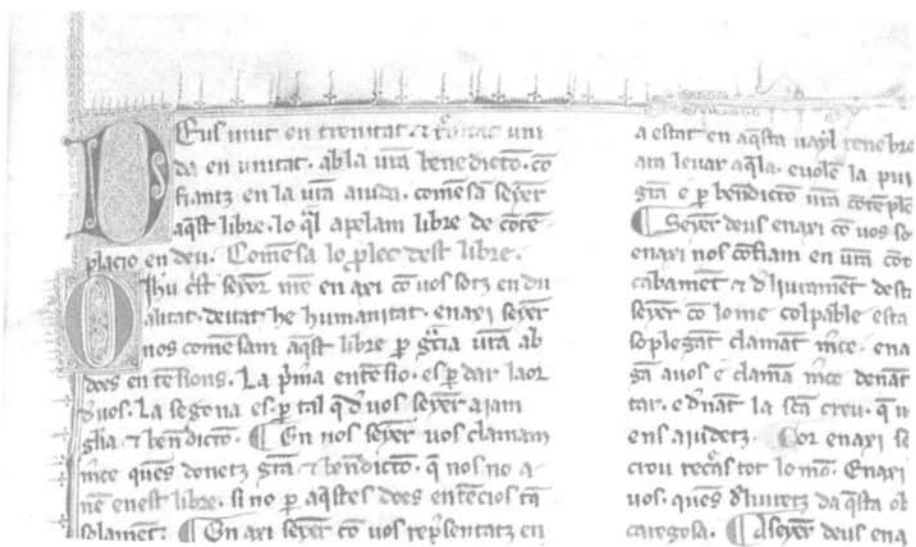 Deus unit en trenitat ⁊ trinitat uni
da en unitat. ab la ūra benedicto. cō
fiantz en la ūra aiuda. comēsā seyer
aq̄st libre. lo q̄l apelam libre de cōtē
placio en deu. Comēsa lo ꝓlec dest libre.
O Ihu c̄st seyor mē en axi cō uos sotz en du
alitat. deitat he humanitat. enaxi seyer
nos comēsam aq̄st libre ꝑ grā̄ ūra ab
does entēsions. La p̄ma entēsio. es ꝑ dar laor
a uos. La segona es. ꝑ tal q̄ d uos seyer aiam
gl̄ia ⁊ bendicto. ¶ En nos seyer uos clamam
m̄ce quens donetz grā ⁊ bendicto. q̄ nos no a
nē en est libre. si no ꝑ aq̄stes does entēcios tā
solamēt. ¶ En axi seyer cō uos rep̄sentatz en
a estat en aq̄sta uayl tenebre
am leuar aq̄la. euolē la pui
grā e ꝑ bendicto ūra cōtēple
¶ Seyer deus enaxi cō uos so
enaxi nos cōfiam en ūrā cōt
cabamēt ⁊ dliuramēt desta
seyer cō lome colpable esta
soplegāt clamāt m̄ce. ena
sā auos e clamā m̄ce denāt
tar. e dnāt la sc̄ā creu. q̄ n
ens aiudetz. Cor enaxi se
crou rec̄as tot lo mō. Enaxi
uos. quēs dliuretz da q̄sta ob
caregosa. ¶ A seyer deus ena